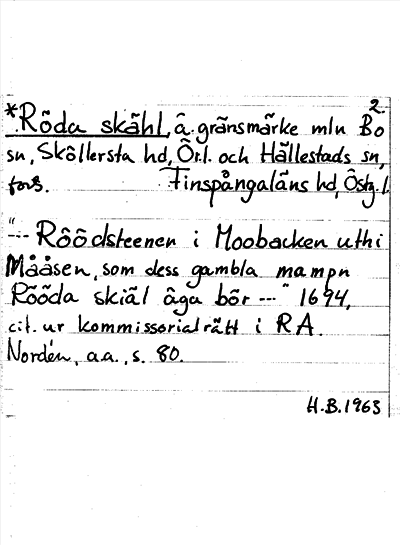 2.
*Röda skähl, å. gränsmärke mln Bo
sn, Sköllersta hd, Ör.l. och Hällestads sn,
förs. Finspångaläns hd, Östg.l.
"--- Röödsteenen i Moobacken uthi
Mååsen, som dess gambla nampn
Rööda skiäl äga bör ---" 1694,
cit. ur kommissorialrätt i RA.
Nordén, a.a., s. 80.
H.B.1963